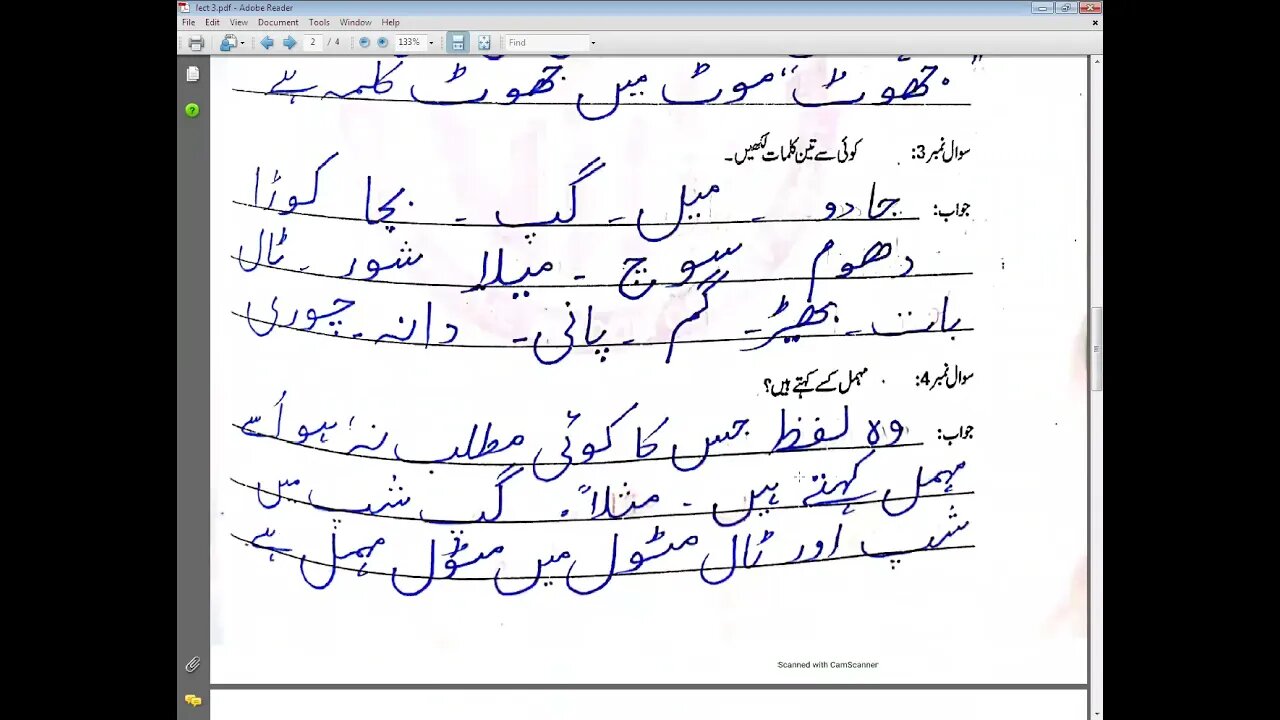 lect 3.pdf - Adobe Reader
File Edit View Document Tools Window Help
2 / 4 133% Find
"جھوٹ" موٹ میں جھوٹ کلمہ ہے
سوال نمبر 3: کوئی سے تین کلمات لکھیں۔
جواب: جادو ۔ میل ۔ گپ ۔ بچا کوڑا
دھوم سوچ ۔ میلا شور ۔ ٹال
بات ۔ بھیڑ ۔ گم ۔ پانی ۔ دانہ ۔ چوری
سوال نمبر 4: مہمل کسے کہتے ہیں؟
جواب: وہ لفظ جس کا کوئی مطلب نہ ہو اُسے
مہمل کہتے ہیں ۔ مثلاً . گپ شپ میں
شپ اور ٹال مٹول میں مٹول مہمل ہے
Scanned with CamScanner